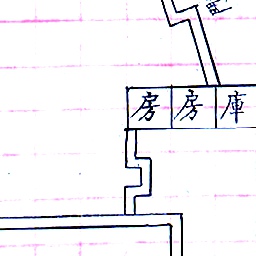 房 房 庫